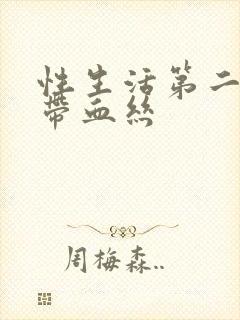 性生活第二
帶血絲
周梅森..